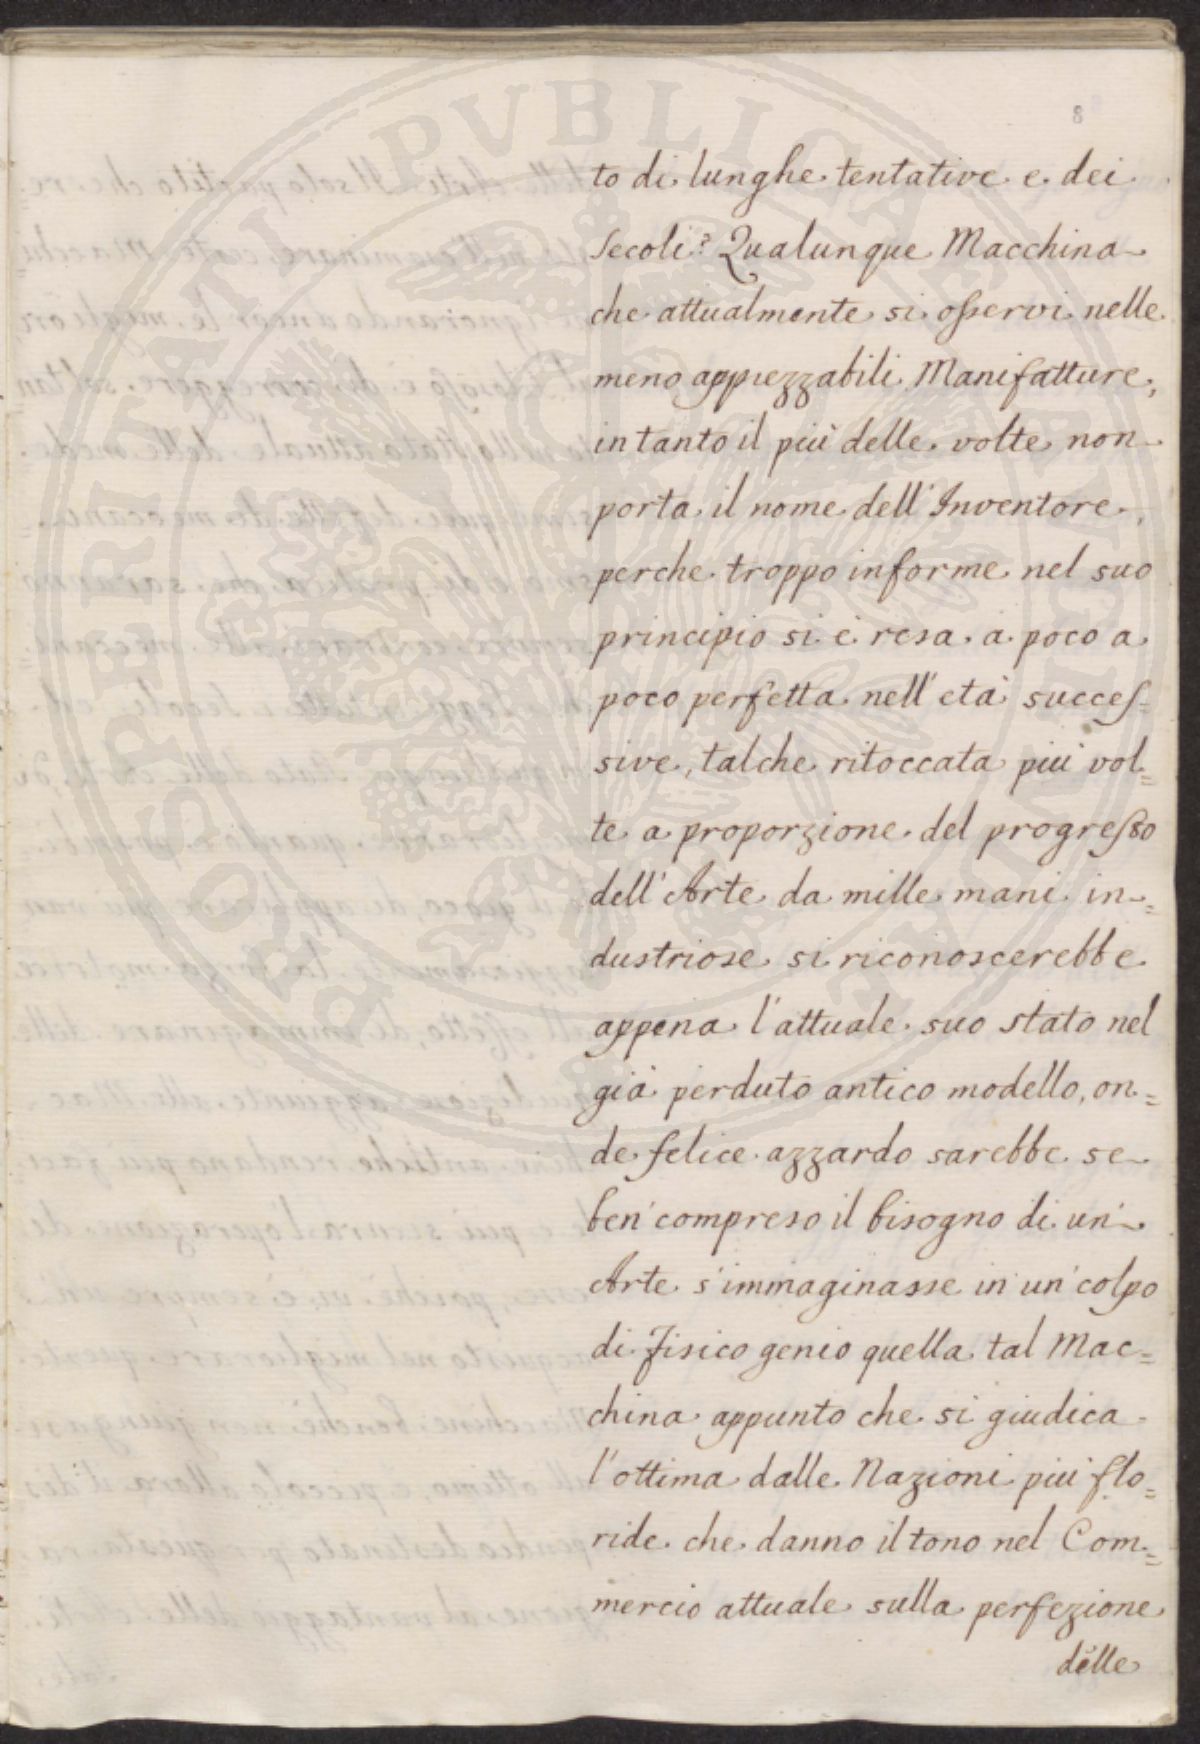 8
to di lunghe tentative e dei
secoli? Qualunque Macchina
che attualmente si osservi nelle
meno apprezzabili Manifatture,
in tanto il più delle volte non
porta il nome dell'Inventore,
perche troppo informe nel suo
principio si è resa a poco a
poco perfetta nell'età succes=
sive, talche ritoccata più vol=
te a proporzione del progresso
dell'Arte da mille mani in=
dustriose si riconoscerebbe
appena l'attuale suo stato nel
già perduto antico modello, on=
de felice azzardo sarebbe se
ben compreso il bisogno di un'
Arte s'immaginasse in un'colpo
di Fisico genio quella tal Mac=
china appunto che si giudica
l'ottima dalle Nazioni più flo=
ride che danno il tono nel Com=
mercio attuale sulla perfezione
delle
PROSPERITATI PUBLICAE AUGENDAE